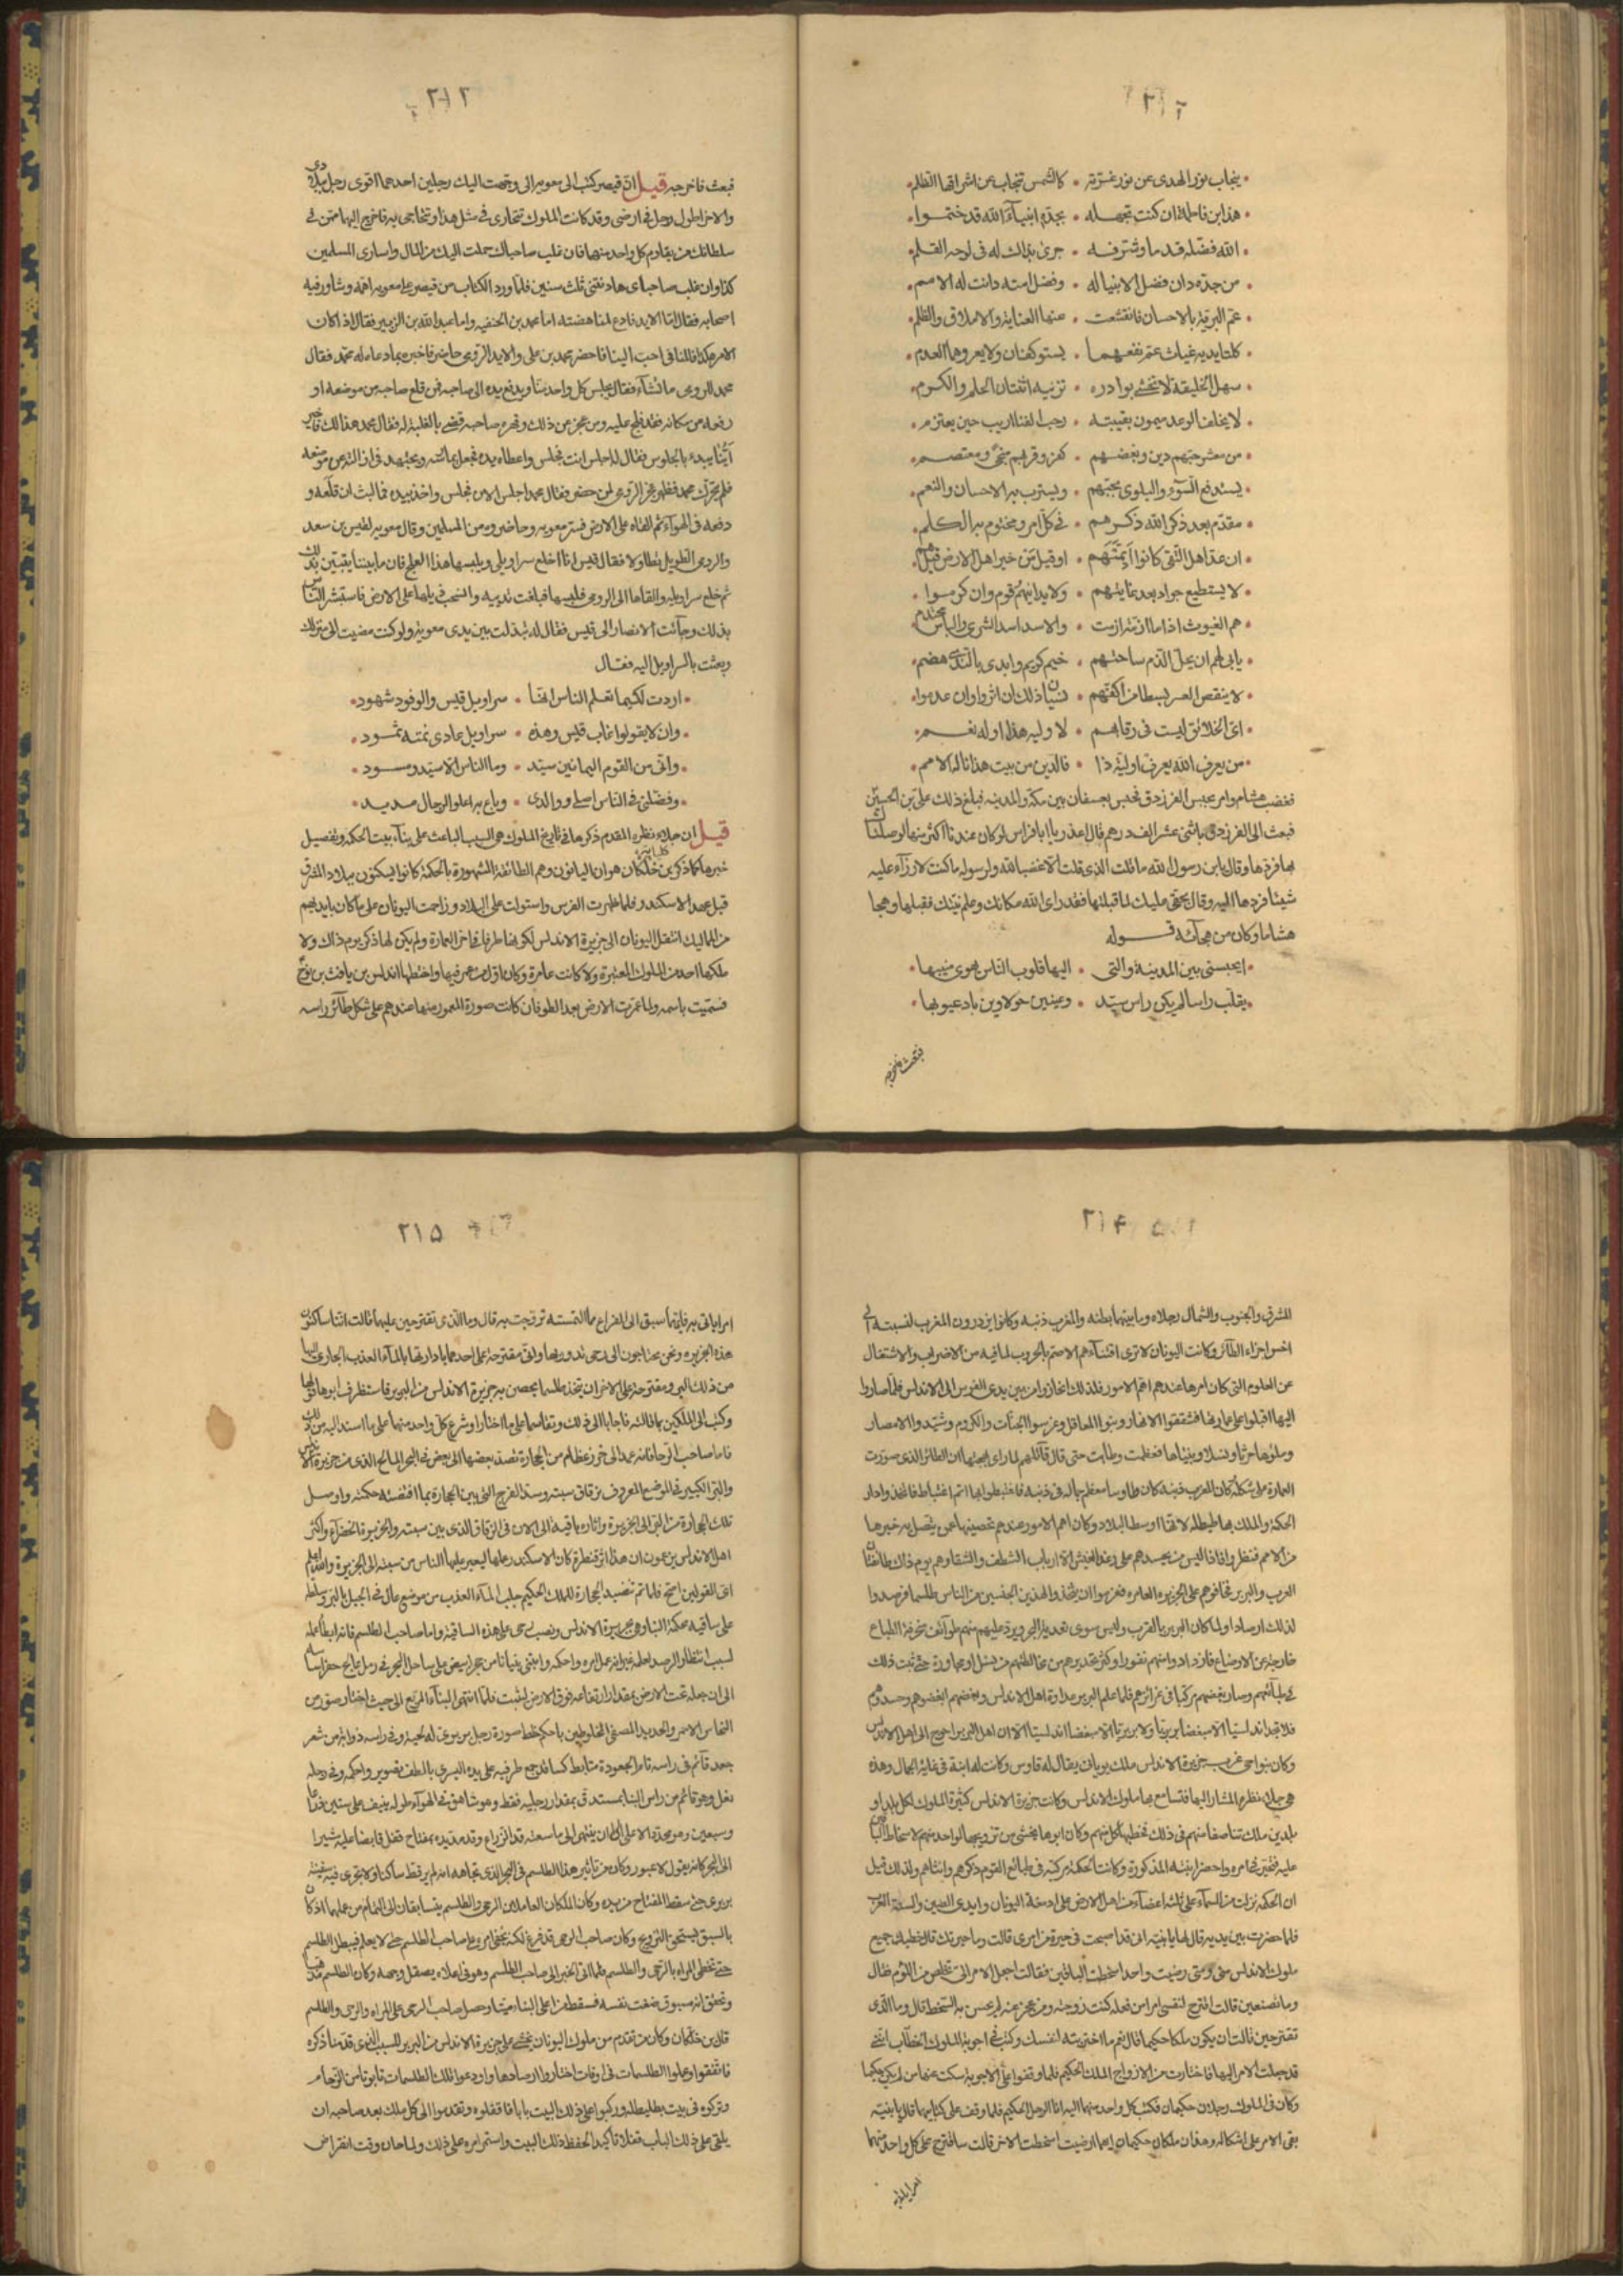 ينجاب نور الهدى عن نور غرّته • كالشمس تنجاب عن اشراقها الظلم
هذا ابن فاطمة ان كنت تجهله • بجدّه انبياء الله قد ختموا
الله فضّله قدما وشرّفه • جرى بذاك له فى لوحه القلم
من جدّه دان فضل الانبيا له • وفضل امته دانت له الامم
عمّ البرية بالاحسان فانقشعت • عنها العناية والاملاق والظلم
كلتا يديه غياث عمّ نفعهما • يستوكفان ولا يعروهما العدم
سهل الخليقة لا تخشى بوادره • تزينه اثنتان الحلم والكرم
لا يخلف الوعد ميمون نقيبته • رحب الفنا اريب حين يعتزم
من معشر حبهم دين وبغضهم • كفر وقربهم منجى ومعتصم
يستدفع السوء والبلوى بحبّهم • ويسترب به الاحسان والنعم
مقدّم بعد ذكر الله ذكرهم • فى كل امر ومختوم به الكلم
ان عدّ اهل التقى كانوا أئمتهم • او قيل من خير اهل الارض قيل هم
لا يستطيع جواد بعد غايتهم • ولا يدانيهم قوم وان كرموا
هم الغيوث اذا ما ازمة ازمت • والاسد اسد الشرى والباس محتدم
يابى لهم ان يحل الذم ساحتهم • خيم كريم وايدى بالندى هضم
لا ينقص العسر بسطا من اكفّهم • سيّان ذلك ان اثروا وان عدموا
اىّ الخلائق ليست فى رقابهم • لاوليه هذا او له نعم
من يعرف الله يعرف اولية ذا • فالدين من بيت هذا ناله الامم
فغضب هشام وامر بحبس الفرزدق فحبس بعسفان بين مكة والمدينه فبلغ ذلك علىّ بن الحسين
فبعث الى الفرزدق باثنى عشر الف درهم وقال اعذر يا ابا فراس لو كان عندنا اكثر منها لوصلناك
بها فردها وقال يا بن رسول الله ما قلت الذى قلت الا غضبا لله ولرسوله ما كنت لارزأ عليه
شيئا فردها اليه وقال بحقى عليك لما قبلتها فقد راى الله مكانك وعلم نيّتك فقبلها وهجا
هشاما وكان من هجآئه قوله
ايحبسنى بين المدينة والتى • اليها قلوب الناس يهوى منيبها
يقلّب راسا لم يكن راس سيّد • وعينين حولاوين باد عيوبها
فبعث فاخرجه
٢١٣
فبعث فاخرجه قيل ان قيصر كتب الى معويه انى وجهت اليك رجلين احدهما اقوى رجل ببلادى
والاخر اطول رجل فى ارضى وقد كانت الملوك تتجارى فى مثل هذا وتتحاجى به فاخرج اليهما ممن فى
سلطانك من يقاوم كل واحد منهما فان غلب صاحباك حملت اليك من المال واسارى المسلمين
كذا وان غلب صاحباى هادنتنى ثلث سنين فلما ورد الكتاب من قيصر على معويه اهمّه وشاور فيه
اصحابه فقال امّا الايد فادع لمناهضته اما محمد بن الحنفيه واما عبد الله بن الزبير فقال اذا كان
الامر هكذا فالمنافى احب الينا فاحضر محمد بن على والايد الرومى حاضر فاخبره بما دعاه له محمد فقال
محمد للرومى ما تشآء فقال يجلس كل واحد منّا ويدفع يده الى صاحبه فمن قلع صاحبه من موضعه او
رفعه من مكانه فقد فلج عليه ومن عجز عن ذلك وقهره صاحبه قضى بالغلبة له فقال محمد هذا لك فاخبر
أيّنا يبدء بالجلوس فقال له اجلس انت فجلس واعطاه يده فجعل يمارسه ويجتهد فى ازالته عن موضعه
فلم يتحرك محمد فظهر عجز الرومى لمن حضر فقال محمد اجلس الان فجلس واخذ بيده فما لبث ان قلعه و
دفعه فى الهواء ثم القاه على الارض فسرّ معويه وحاضروه من المسلمين وقال معويه لقيس بن سعد
والرومى الطويل تطاولا فقال قيس انا اخلع سراويلى ويلبسها هذا العلج فان ما بيننا يتبيّن بذلك
ثم خلع سراويله والقاها الى الرومى فلبسها فبلغت ثدييه وانسحب ذيلها على الارض فاستبشر الناس
بذلك وجآئت الانصار الى قيس فقال له تبذلت بين يدى معويه ولو كنت مضيت الى منزلك
وبعثت بالسراويل اليه فقال
اردت لكيما تعلم الناس انها • سراويل قيس والوفود شهود
وان لا يقولوا غاب قيس وهذه • سراويل عادى نمته ثمود
وانى من القوم اليمانين سيّد • وما الناس الا سيّد ومسود
وفضّلنى فى الناس اصلى ووالدى • وباع به اعلو الرجال مديد
قيل ان حلاء نظره المقدم ذكرها فى تاريخ الملوك هى السبب الباعث على بناء بيت الحكمه وتفصيل
خبرها كما ذكر بن خلكان هو ان اليونان وهم الطائفة المشهورة بالحكمة كانوا يسكنون ببلاد المشرق
قبل عهد الاسكندر فلما ظهرت الفرس واستولت على البلاد وزاحمت اليونان على ما كان بايديهم
من الممالك انتقل اليونان الى جزيرة الاندلس لكونها طرفا فى آخر العمارة ولم يكن لها ذكر يوم ذاك ولا
ملكها احد من الملوك المعتبرة ولا كانت عامرة وكان اوّل من عمر فيها واختطها اندلس بن يافث بن نوح
فسمّيت باسمه ولما عمّرت الارض بعد الطوفان كانت صورة المعمور منها عندهم على شكل طآئر راسه
٢١۴
المشرق والجنوب والشمال رجلاه وما بينهما بطنه والمغرب ذنبه وكانوا يزدرون المغرب لنسبته الى
اخس اجزاء الطائر وكانت اليونان لا ترى افنآءهم الامم بالحروب لما فيه من الاضرار والاشتغال
عن العلوم التى كان امرها عندهم اهم الامور فلذلك انحازوا من بين يدى الفرس الى الاندلس فلما صاروا
اليها اقبلوا على عمارتها فشققوا الانهار وبنوا المعاقل وغرسوا الجنّات والكروم وشيّدوا الامصار
وملؤها حرثا ونسلا وبنيانا فعظمت وطابت حتى قال قآئلهم لما راى بهجتها ان الطائر الذى صوّرت
العمارة على شكله كان المغرب ذنبه كان طاوسا معظم جماله فى ذنبه فاغتبطوا بها اتم اغتباط فاتخذوا دار
الحكمة والملك بها طليطله لانها اوسط البلاد وكان اهم الامور عندهم تحصينها عمن يتصل به خبرها
من الامم فنظروا فاذا ليس من يحسدهم على رغد العيش الا ارباب الشظف والشقا وهم يوم ذاك طائفتان
العرب والبربر فخافوهم على الجزيره العامره فعزموا ان يتخذوا لهذين الجنسين من الناس طلسما فرصدوا
لذلك ارصادا ولما كان البربر بالقرب وليس سوى تعدية البحر ويرد عليهم منهم طوآئف منحرفة الطباع
خارجة عن الاوضاع فازدادوا منهم نفورا وكثر تحذيرهم من مخالطتهم من نسل او مجاورة حتى ثبت ذلك
فى طبآئعهم وصار بغضهم مركبا فى غرائزهم فلما علم البربر عداوة اهل الاندلس وبغضهم ابغضوهم وحسدوهم
فلا تجد اندلسيّا الا مبغضا بربريّا ولا بربريّا الا مبغضا اندلسيّا الا ان اهل البربر احوج الى اهل الاندلس
وكان بنواحى غرب جزيرة الاندلس ملك يونانى يقال له قاوس وكانت له ابنة فى غاية الجمال وهذه
هى حلاء نظره المشار اليها فتسامع بها ملوك الاندلس وكانت جزيرة الاندلس كثيرة الملوك لكل بلد او
بلدين ملك تناصفا منهم فى ذلك فخطبها كل منهم وكان ابوها يخشى من تزويجها لواحد منهم لاسخاط الباقين
عليه فتحيّر فى امره واحضر ابنته المذكورة وكانت الحكمة مركّبة فى طبائع القوم ذكرهم وانثاهم ولذلك قيل
ان الحكمة نزلت من السمآء على ثلثة اعضآء من اهل الارض على ادمغة اليونان وايدى الصين والسنة العرب
فلما حضرت بين يديه قال لها يا بنيّه انى قد اصبحت فى حيرة من امرى قالت وما حيرتك قال خطبك جميع
ملوك الاندلس منّى ومتى رضيت واحدا سخطت الباقين فقالت اجعل الامر الىّ تخلص من اللّوم قال
وما تصنعين قالت اقترح لنفسى امرا من فعله كنت زوجته ومن عجز عنه لم يحسن به السخط قال وما الذى
تقترحين قالت ان يكون ملكا حكيما قال نعم ما اخترته لنفسك وكتب فى اجوبة الملوك الخطّاب انى
قد جعلت الامر اليها فاختارت من الازواج الملك الحكيم فلما وقفوا على الاجوبة سكت عنها من لم يكن حكيما
وكان فى الملوك رجلان حكيمان فكتب كل واحد منهما اليه انا الرجل الحكيم فلما وقف على كتابيهما قال يا بنيّه
بقى الامر على اشكاله وهذان ملكان حكيمان ايهما ارضيت اسخطت الاخر قالت ساقترح على كل واحد منهما
٢١۵
امرا ياتى به فايّهما سبق الى الفراغ مما التمسته تزوّجت به قال وما الذى تقترحين عليهما قالت اننا ساكنون
هذه الجزيره ونحن محتاجون الى رحى تدور بها وانى مقترحة على احدهما بادارتها بالمآء العذب الجارى اليها
من ذلك البر ومقترحة على الاخر ان يتخذ طلسما يحصن به جزيرة الاندلس من البربر فاستظرف ابوها قولها
وكتب الى الملكين بما قالته فاجاباه الى ذلك وتقاسما على ما اختارا وشرع كل واحد منهما على ما اسند اليه من ذلك
فاما صاحب الرحا فانه عمد الى خرز عظام من الحجارة نضد بعضها الى بعض فى البحر المالح الذى بين جزيرة الاندلس
والبرّ الكبير فى الموضع المعروف بزقاق سبته وسدّ الفرج التى بين الحجارة بما اقتضته حكمته واوصل
تلك الحجارة من البرّ الى الجزيرة واثاره باقية الى الان فى الزقاق الذى بين سبته والجزيرة الخضرآء واكثر
اهل الاندلس يزعمون ان هذا اثر قنطرة كان الاسكندر عملها ليعبر عليها الناس من سبته الى الجزيرة والله اعلم
اىّ القولين اصح فلما تم تنضيد الحجارة للملك الحكيم جلب المآء العذب من موضع عال فى الجبل بالبر وسلطه
على ساقية محكمة البنا وهى بجزيرة الاندلس ونصب رحى على هذه الساقية واما صاحب الطلسم فانه ابطأ عمله
لسبب انتظار الرصد لعلمه غير انه عمل امره واحكمه وابتنى بنيانا من حجر ابيض على ساحل البحر فى رمل عالج حفر اساسه
الى ان جعله تحت الارض بمقدار ارتفاعه فوق الارض ليثبت فلما انتهى البنآء المربع الى حيث اختار صوّر من
النحاس الاحمر والحديد المصفى المخلوطين باحكم خلط صورة رجل بربرى له لحية وفى راسه ذوابة من شعر
جعد قآئم فى راسه تام الجعودة متابط كسا قد جمع طرفيه على يده اليسرى بالطف تصوير واحكمه وفى رجله
نعل وهو قائم من راس البنا بمستدق بمقدار رجليه فقط وهو شاهق فى الهوآء طوله ينيف على ستين ذراعا
وسبعين وهو محدّد الاعلى الى ان ينتهى الى ما سعته قدر الذراع وقد مدّ يده بمفتاح قفل قابضا عليه مشيرا
الى البحر كانه يقول لا عبور وكان من تاثير هذا الطلسم فى البحر الذى تجاهه انه لم ير قط ساكنا ولا تجرى فيه سفينة
بربرى حتى سقط المفتاح من يده وكان الملكان العاملان الرحى والطلسم يتسابقان الى التمام من عملهما اذ كان
بالسبق يستحق التزويج وكان صاحب الرحى قد فرغ لكنّه يخفى امره على صاحب الطلسم حتى لا يعلم فيبطل الطلسم
حتى تحظى المراه بالرّحى والطلسم فلما اتى الخبر الى صاحب الطلسم وهو فى اعلاه يصقل وجهه وكان الطلسم مذهبا
وتحقق انه مسبوق ضعفت نفسه فسقط من اعلى البنا ميتا وحصل صاحب الرحى على المراه والرحى والطلسم
قال بن خلكان وكان من تقدم من ملوك اليونان يخشى على جزيرة الاندلس من البربر للسبب الذى قدّمنا ذكره
فاتّفقوا وعملوا الطلسمات فى اوقات اختاروا ارصادها واودعوا تلك الطلسمات تابوتا من الرّخام
وتركوه فى بيت بطليطله وركبوا على ذلك البيت بابا فاقفلوه وتقدموا الى كل ملك بعد صاحبه ان
يلقى على ذلك الباب قفلا تاكيدا لحفظ ذلك البيت واستمر امره على ذلك ولما حان وقت انقراض